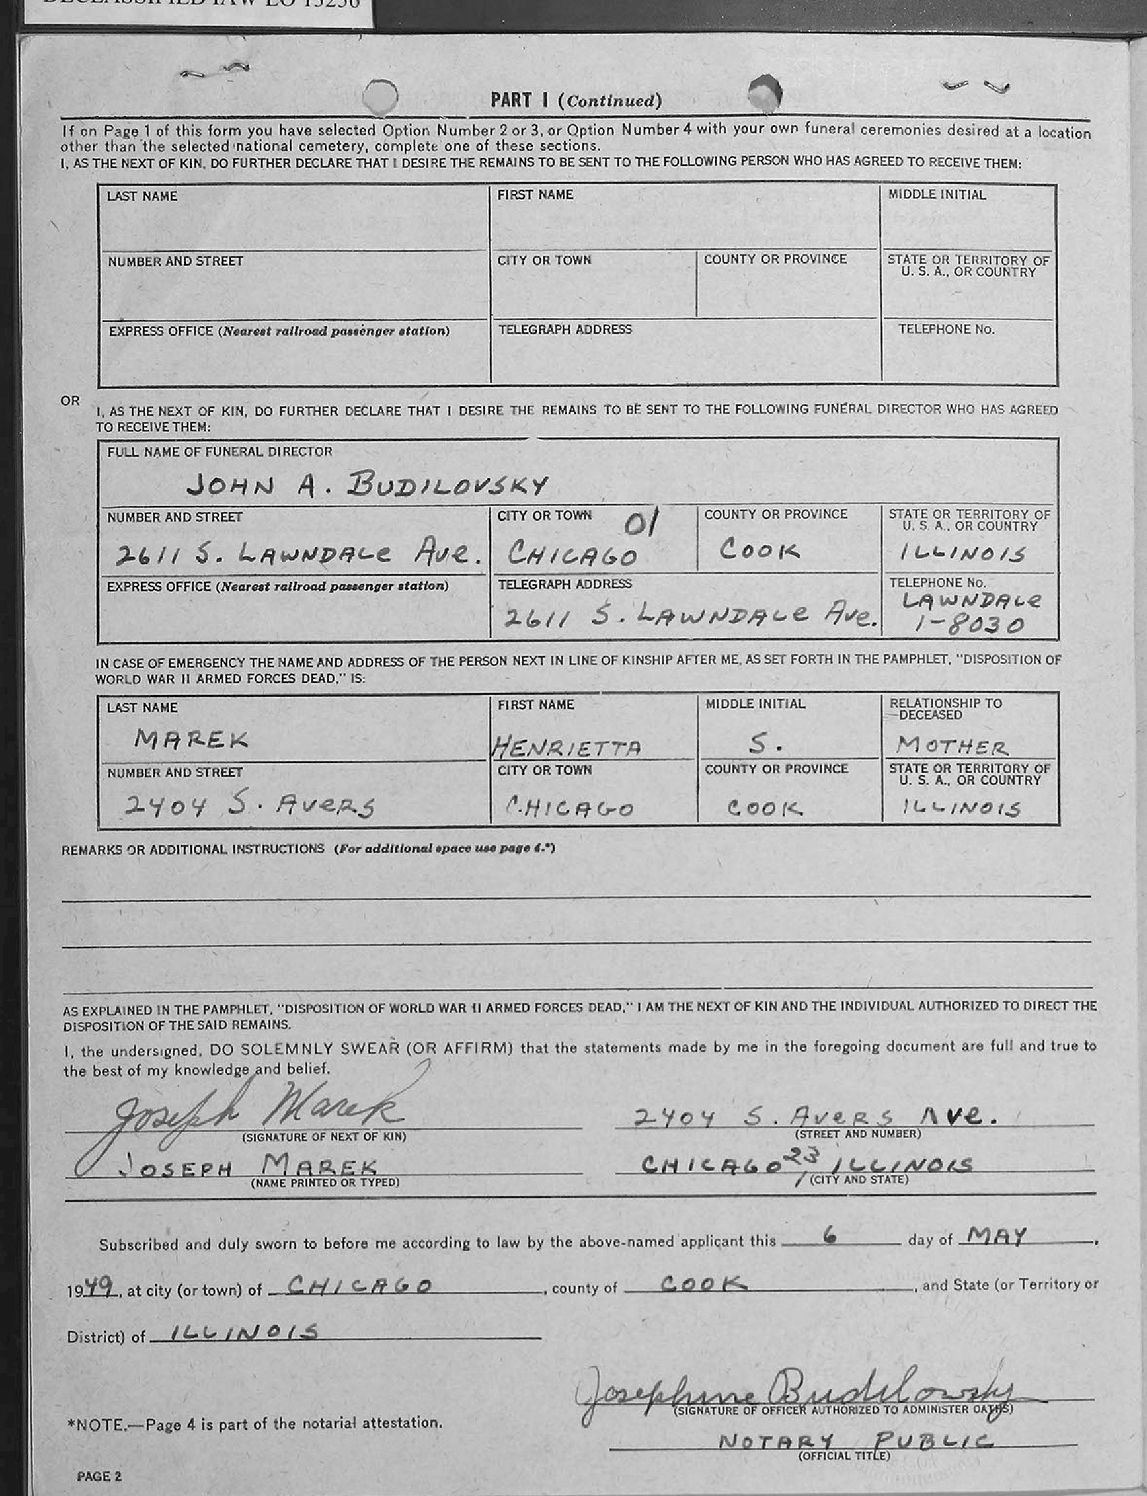 DECLASSIFIED IAW EO 13256
PART I (Continued)
If on Page 1 of this form you have selected Option Number 2 or 3, or Option Number 4 with your own funeral ceremonies desired at a location
other than the selected national cemetery, complete one of these sections.
I, AS THE NEXT OF KIN, DO FURTHER DECLARE THAT I DESIRE THE REMAINS TO BE SENT TO THE FOLLOWING PERSON WHO HAS AGREED TO RECEIVE THEM:
LAST NAME FIRST NAME MIDDLE INITIAL
NUMBER AND STREET CITY OR TOWN COUNTY OR PROVINCE STATE OR TERRITORY OF
U. S. A., OR COUNTRY
EXPRESS OFFICE (Nearest railroad passenger station) TELEGRAPH ADDRESS TELEPHONE No.
OR
I, AS THE NEXT OF KIN, DO FURTHER DECLARE THAT I DESIRE THE REMAINS TO BE SENT TO THE FOLLOWING FUNERAL DIRECTOR WHO HAS AGREED
TO RECEIVE THEM:
FULL NAME OF FUNERAL DIRECTOR
JOHN A. BUDILOVSKY
NUMBER AND STREET CITY OR TOWN 01 COUNTY OR PROVINCE STATE OR TERRITORY OF
U. S. A., OR COUNTRY
2611 S. LAWNDALE AVE. CHICAGO COOK ILLINOIS
EXPRESS OFFICE (Nearest railroad passenger station) TELEGRAPH ADDRESS TELEPHONE No.
2611 S. LAWNDALE AVE. LAWNDALE
1-8030
IN CASE OF EMERGENCY THE NAME AND ADDRESS OF THE PERSON NEXT IN LINE OF KINSHIP AFTER ME, AS SET FORTH IN THE PAMPHLET, "DISPOSITION OF
WORLD WAR II ARMED FORCES DEAD," IS:
LAST NAME FIRST NAME MIDDLE INITIAL RELATIONSHIP TO
DECEASED
MAREK HENRIETTA S. MOTHER
NUMBER AND STREET CITY OR TOWN COUNTY OR PROVINCE STATE OR TERRITORY OF
U. S. A., OR COUNTRY
2404 S. AVERS CHICAGO COOK ILLINOIS
REMARKS OR ADDITIONAL INSTRUCTIONS (For additional space use page 4.*)
AS EXPLAINED IN THE PAMPHLET, "DISPOSITION OF WORLD WAR II ARMED FORCES DEAD," I AM THE NEXT OF KIN AND THE INDIVIDUAL AUTHORIZED TO DIRECT THE
DISPOSITION OF THE SAID REMAINS.
I, the undersigned, DO SOLEMNLY SWEAR (OR AFFIRM) that the statements made by me in the foregoing document are full and true to
the best of my knowledge and belief.
Joseph Marek 2404 S. AVERS AVE.
(SIGNATURE OF NEXT OF KIN) (STREET AND NUMBER)
JOSEPH MAREK CHICAGO 23, ILLINOIS
(NAME PRINTED OR TYPED) (CITY AND STATE)
Subscribed and duly sworn to before me according to law by the above-named applicant this 6 day of MAY,
1949, at city (or town) of CHICAGO, county of COOK, and State (or Territory or
District) of ILLINOIS
Josephine Budilovsky
(SIGNATURE OF OFFICER AUTHORIZED TO ADMINISTER OATHS)
*NOTE.—Page 4 is part of the notarial attestation.
NOTARY PUBLIC
(OFFICIAL TITLE)
PAGE 2